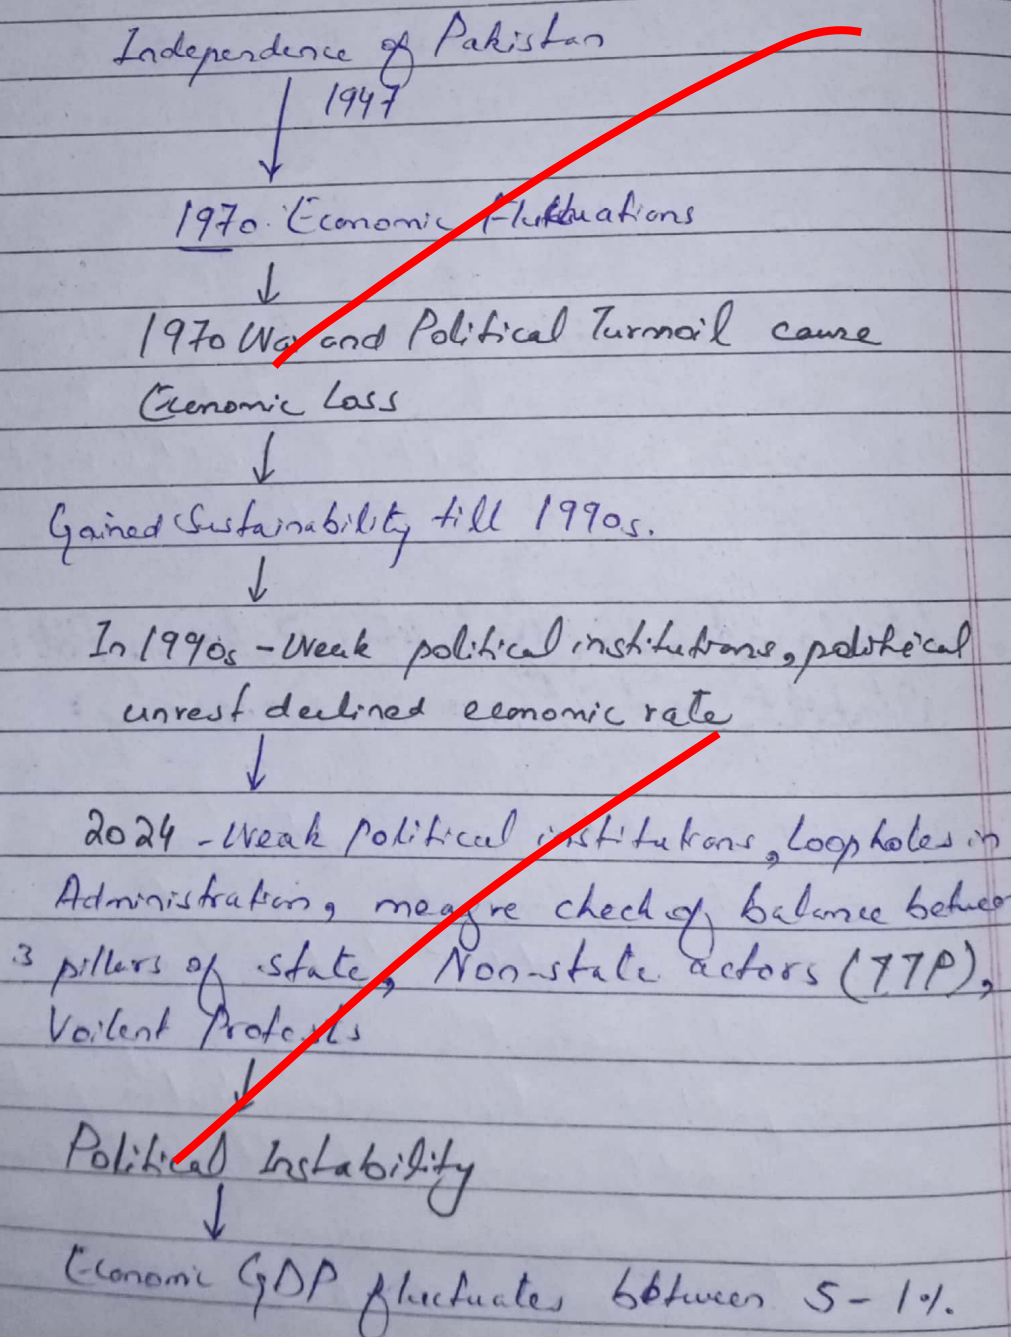 Independence of Pakistan
1947
1970. Economic Fluktuations
1970 War and Political Turmoil cause
Economic Loss
Gained Sustainability till 1990s.
In 1990s - Weak political institutions, political
unrest declined economic rate
2024 - Weak Political institutions, Loopholes in
Administration, meagre check of balance between
3 pillars of state, Non-state actors (TTP),
Voilent Protests
Political Instability
Economic GDP fluctuates between 5-1%.